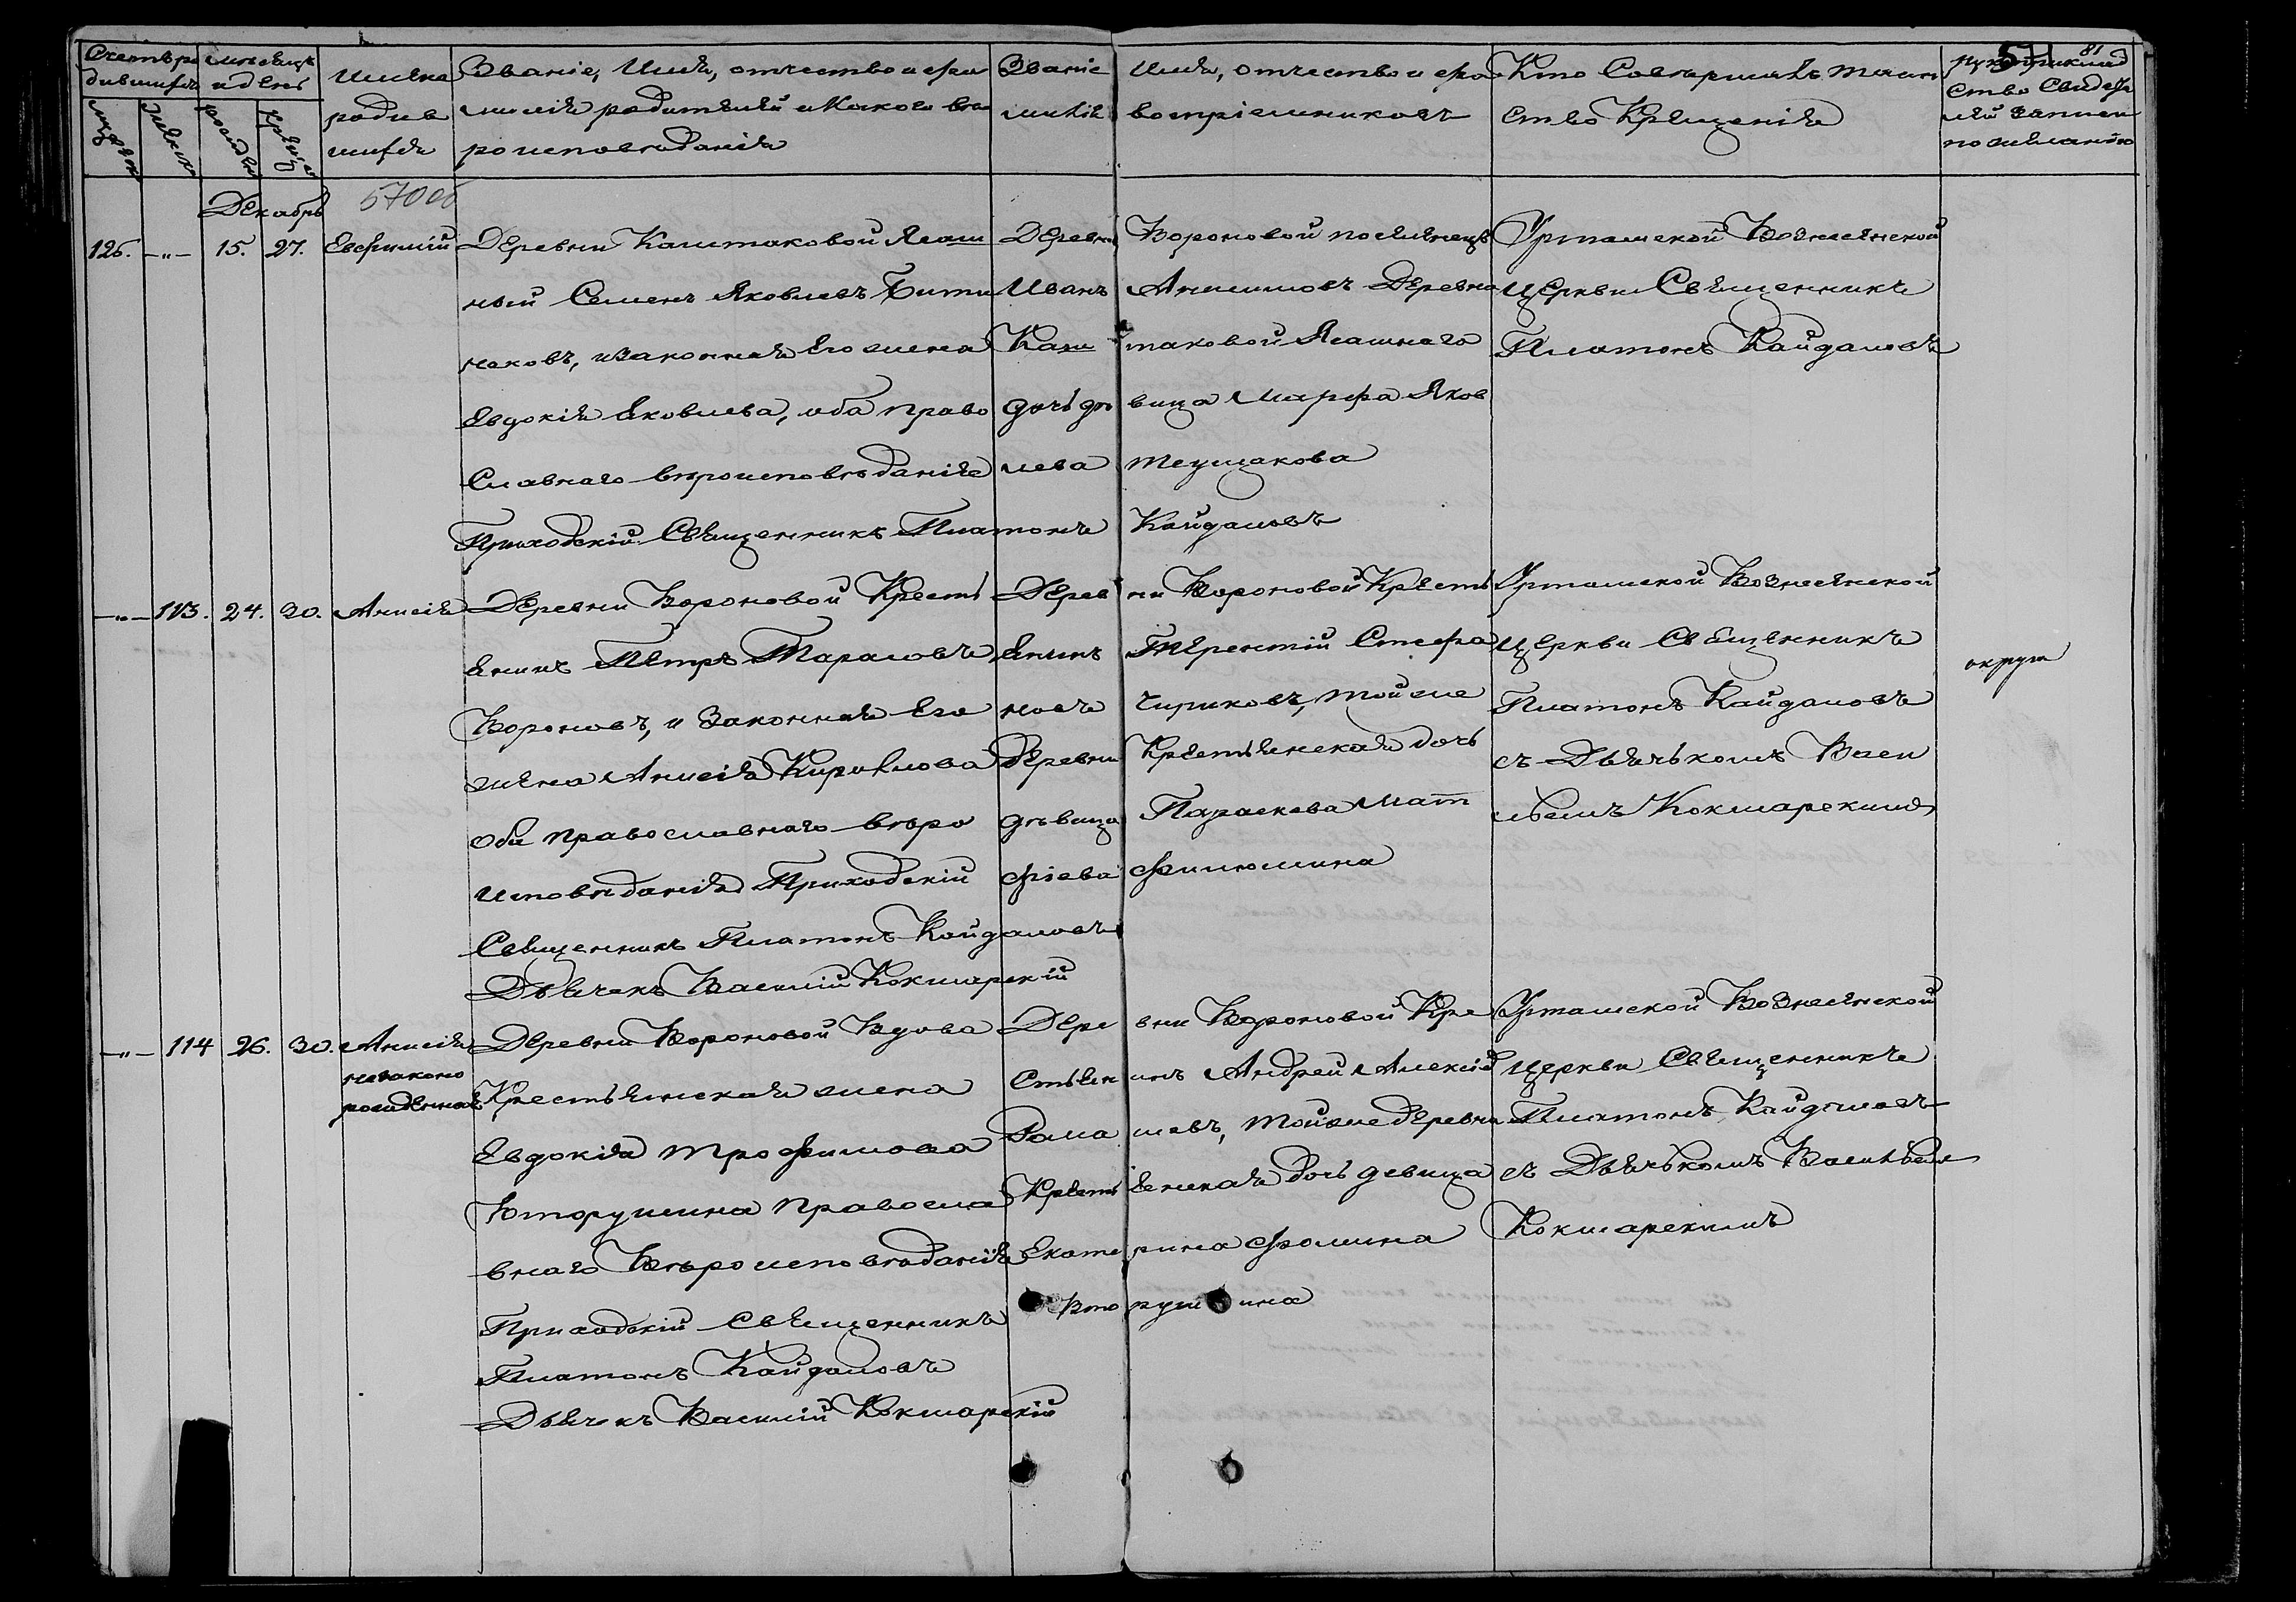 Счетъ ро дившихся
Мѣсяцъ и день
Имена родив шихся
Званіе, Имя, отчество и фа милія родителей и Какого вѣ роисповѣданія
Званіе Имя, отчество и фа милія воспріемниковъ
Кто Совершалъ таин ство Крещенія
Рукоприклад ство Свидете лей записи по желанію
51
81
Декабрь
57об
126. —"— 15. 27. Евфимій
Деревни Каштаковой Ясаш
ный Семенъ Яковлевъ
и законная Его жена
Евдокія Яковлева, оба право
славнаго вѣроисповѣданія
Приходскій Священникъ Платонъ Кайдаловъ
Деревни Вороновой поселенецъ
Иванъ Анисимовъ Деревни
Каштаковой Ясашнаго
дочь дѣвица Марфа Яков
лева Теущакова
Урташской Вознесенской
Церкви Священникъ
Платонъ Кайдаловъ
—"— 113. 24. 30. Анисія
Деревни Вороновой Кресть
янинъ Петръ Тарасовъ
Вороновъ, и Законная Его
жена Анисія Кирилова
оба православнаго вѣро
исповѣданія Приходскій
Священникъ Платонъ Кайдаловъ
Дьячекъ Василій Кокшарскій
Деревни Вороновой Кресть
янинъ Терентій Стефа
новъ Чириковъ, той же
деревни Крестьянская дочь
дѣвица Параскева Мат
фіева Филюшина
Урташской Вознесенской
Церкви Священникъ
Платонъ Кайдаловъ
съ Дьячькомъ Васи
льемъ Кокшарскимъ
—"— 114 26. 30. Анисія
незаконо
рожденная
Деревни Вороновой Вдова
Крестьянская жена
Евдокія Трофимова
Вторушина Правосла
внаго Вѣроисповѣданія
Приходскій Священникъ
Платонъ Кайдаловъ
Дьячекъ Василій Кокшарскій
Деревни Вороновой Кре
стьянинъ Андрей Алексіе
Рома шевъ, той же деревни
Крестьянская дочь девица
Екатерина Фомина
Вторушина
Урташской Вознесенской
Церкви Священникъ
Платонъ Кайдаловъ
съ Дьячькомъ Васильемъ
Кокшарскимъ